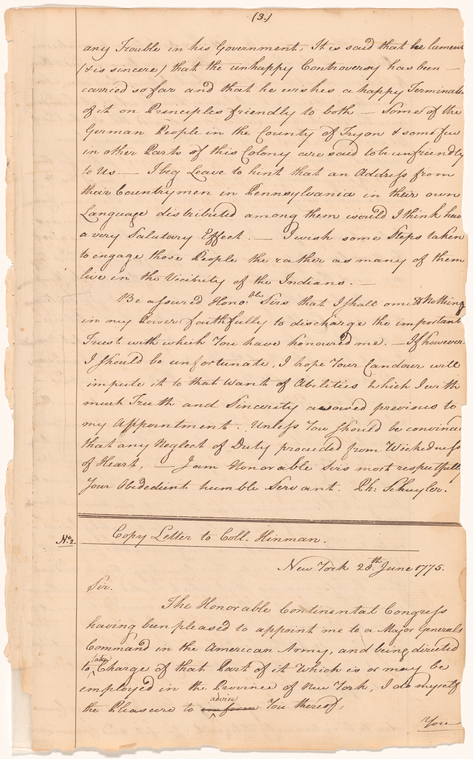 (3.)
any Trouble in his Government. It is said that he laments
(& is sincere) that the unhappy Controversy has been
carried so far and that he wishes a happy Termination
of it on Principles friendly to both — Some of the
German People in the County of Tryon & some few
in other Parts of this Colony are said to be unfriendly
to Us — I beg Leave to hint that an Address from
their Countrymen in Pennsylvania in their own
Language distributed among them would I think have
a very Salutary Effect. — I wish some Steps taken
to engage those People the rather as many of them
live in the Vicinity of the Indians. —
Be assured Hono.ble Sirs that I shall omit Nothing
in my Power faithfully to discharge the important
Trust with which You have honoured me. — If however
I should be unfortunate, I hope Your Candour will
impute it to that Want of Abilities which I with
much Truth and Sincerity avowed previous to
my Appointment. Unless You should be convinced
that any Neglect of Duty proceeded from Wickedness
of Heart, — I am Honorable Sirs most respectfully
Your Obedient humble Servant. Ph: Schuyler.
No. 2. Copy Letter to Coll. Hinman.
New York 28th June 1775.
Sir.
The Honorable Continental Congress
having been pleased to appoint me to a Major Generals
Command in the American Army, and being directed
to take Charge of that Part of it which is or may be
employed in the Province of New York, I do myself
the Pleasure to inform advise You thereof,
Your